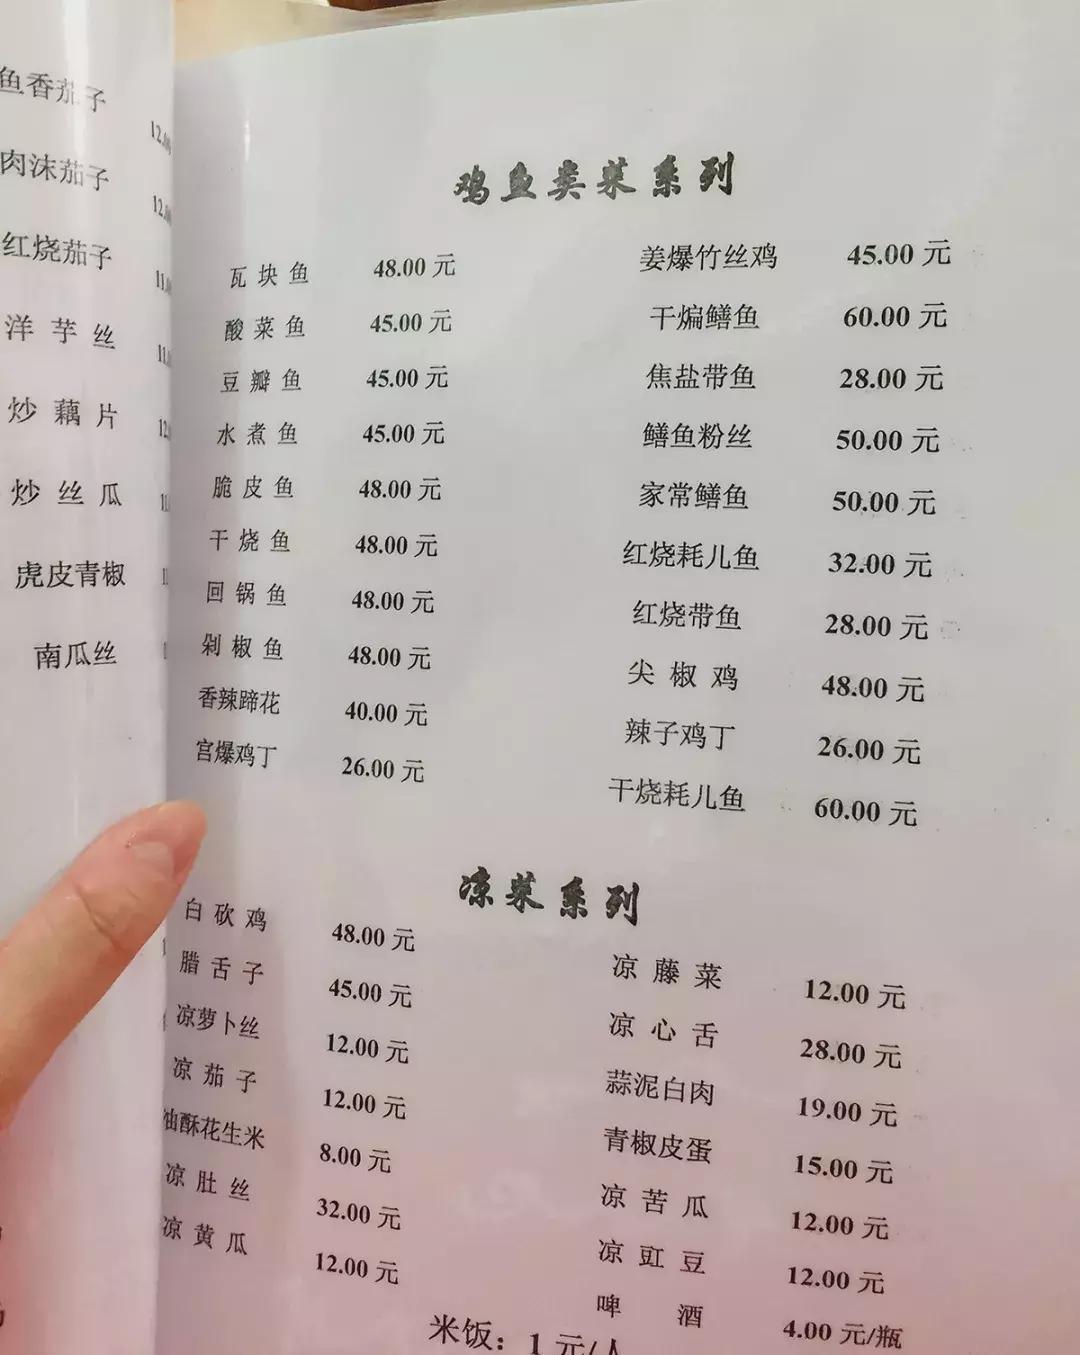 鱼香茄子
肉沫茄子
红烧茄子
洋芋丝
炒藕片
炒丝瓜
虎皮青椒
南瓜丝
鸡鱼类菜系列
瓦块鱼 48.00 元
酸菜鱼 45.00 元
豆瓣鱼 45.00 元
水煮鱼 45.00 元
脆皮鱼 48.00 元
干烧鱼 48.00 元
回锅鱼 48.00 元
剁椒鱼 48.00 元
香辣蹄花 40.00 元
宫爆鸡丁 26.00 元
姜爆竹丝鸡 45.00 元
干煸鳝鱼 60.00 元
焦盐带鱼 28.00 元
鳝鱼粉丝 50.00 元
家常鳝鱼 50.00 元
红烧耗儿鱼 32.00 元
红烧带鱼 28.00 元
尖椒鸡 48.00 元
辣子鸡丁 26.00 元
干烧耗儿鱼 60.00 元
凉菜系列
白砍鸡 48.00 元
腊舌子 45.00 元
凉萝卜丝 12.00 元
凉茄子 12.00 元
油酥花生米 8.00 元
凉肚丝 32.00 元
凉黄瓜 12.00 元
凉藤菜 12.00 元
凉心舌 28.00 元
蒜泥白肉 19.00 元
青椒皮蛋 15.00 元
凉苦瓜 12.00 元
凉豇豆 12.00 元
啤酒 4.00 元/瓶
米饭：1 元/人